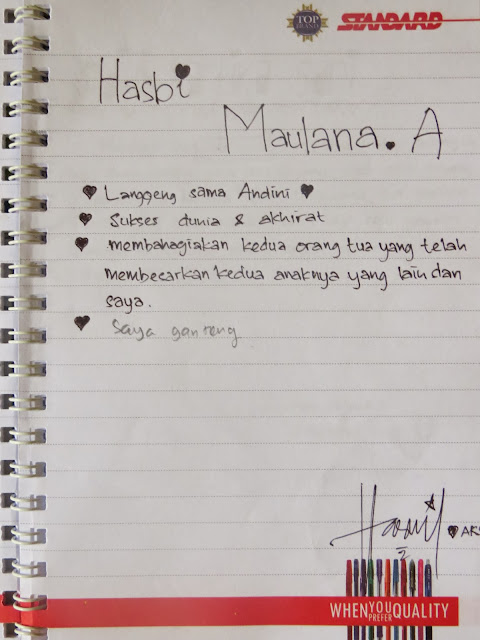 TOP BRAND
STANDARD
Hasbi
Maulana. A
Langgeng sama Andini
Sukses dunia & akhirat
membahagiakan kedua orang tua yang telah
membecarkan kedua anaknya yang lain dan
saya.
Saya ganteng
WHEN YOU PREFER QUALITY